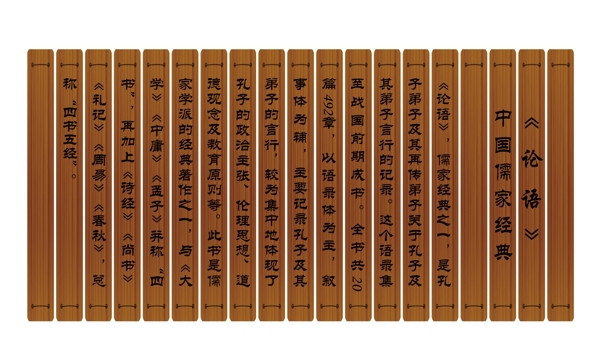 《论语》
中国儒家经典
《论语》，儒家经典之一，是孔
子弟子及其再传弟子关于孔子及
其弟子言行的记录。这个语录集
至战国前期成书。全书共20
篇492章，以语录体为主，叙
事体为辅，主要记录孔子及其
弟子的言行，较为集中地体现了
孔子的政治主张、伦理思想、道
德观念及教育原则等。此书是儒
家学派的经典著作之一，与《大
学》《中庸》《孟子》并称“四
书”，再加上《诗经》《尚书》
《礼记》《周易》《春秋》，总
称“四书五经”。